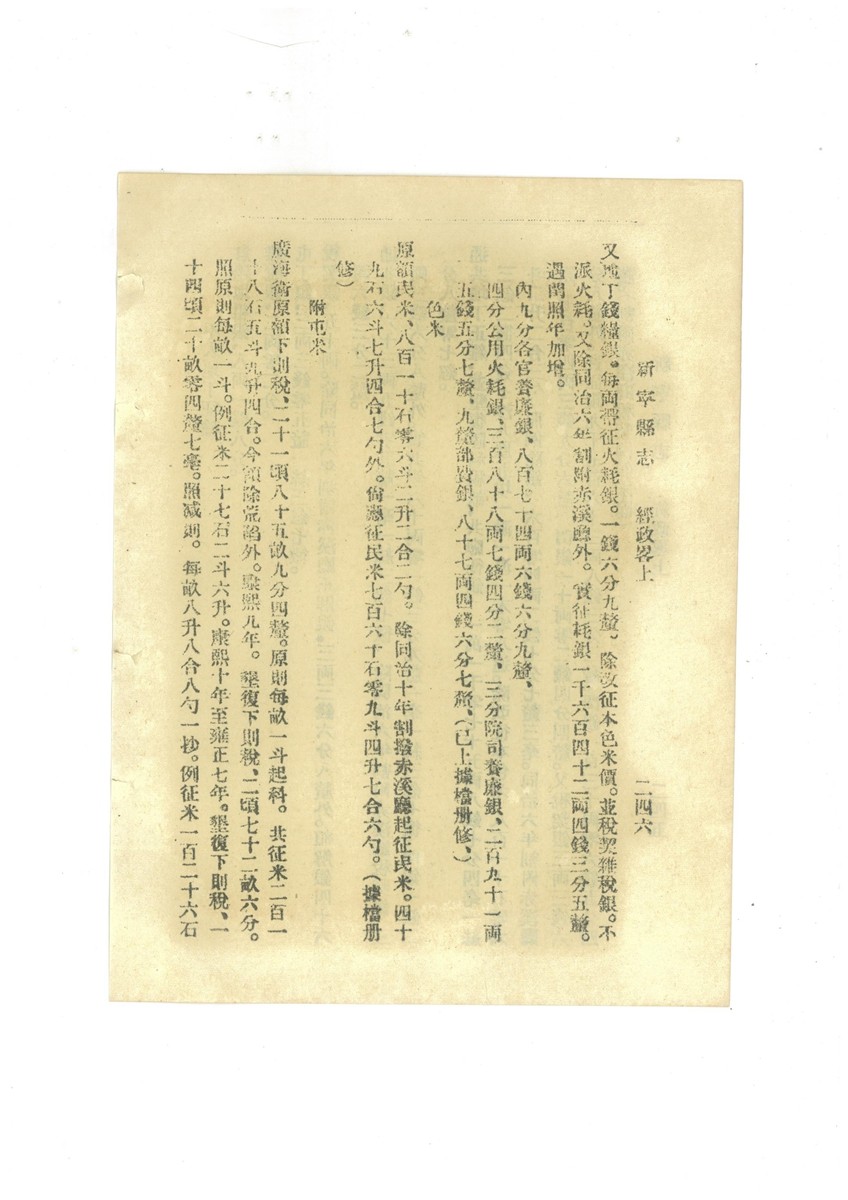 新寧縣志　經政畧上　二四六
又地丁錢糧銀。每両帶征火耗銀。一錢六分九釐、除改征本色米價。並稅契雜稅銀。不
派火耗。又除同治六年割附赤溪廳外。實征耗銀一千六百四十二両四錢三分五釐。
遇閏照年加增。
內九分各官養廉銀、八百七十四両六錢六分九釐、
四分公用火耗銀、三百八十八両七錢四分二釐、三分院司養廉銀、二百九十一両
五錢五分七釐、九釐部費銀、八十七両四錢六分七釐、（已上據檔册修、）
色米
原額民米、八百一十石零六斗二升二合二勺。除同治十年割撥赤溪廳起征民米。四十
九石六斗七升四合七勺外。尙應征民米七百六十石零九斗四升七合六勺。（據檔册
修）
附屯米
廣海衛原額下則稅、二十一頃八十五畝九分四釐。原則每畝一斗起科。共征米二百一
十八石五斗九升四合。今額除荒陷外。康熙九年。墾復下則稅、二頃七十二畝六分。
照原則每畝一斗。例征米二十七石二斗六升。康熙十年至雍正七年。墾復下則稅、一
十四頃二十畝零四釐七毫。照減則。每畝八升八合八勺一抄。例征米一百二十六石